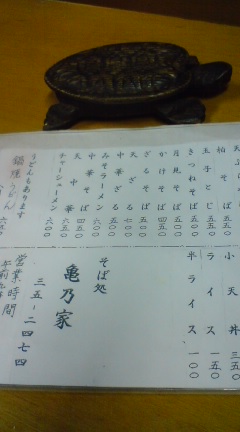 柏そば 五五〇
玉子とじ 五五〇
きつねそば 五〇〇
月見そば 五〇〇
かけそば 四五〇
ざるそば 五五〇
天ざる 七五〇
中華ざる 五五〇
みそラーメン 六〇〇
中華そば 五〇〇
天中華 六五〇
チャーシューメン 六〇〇
うどんもあります
鍋焼うどん
小天丼 三五〇
ライス 一五〇
半ライス 一〇〇
そば処
亀乃家
三五-二四七四
営業時間
午前